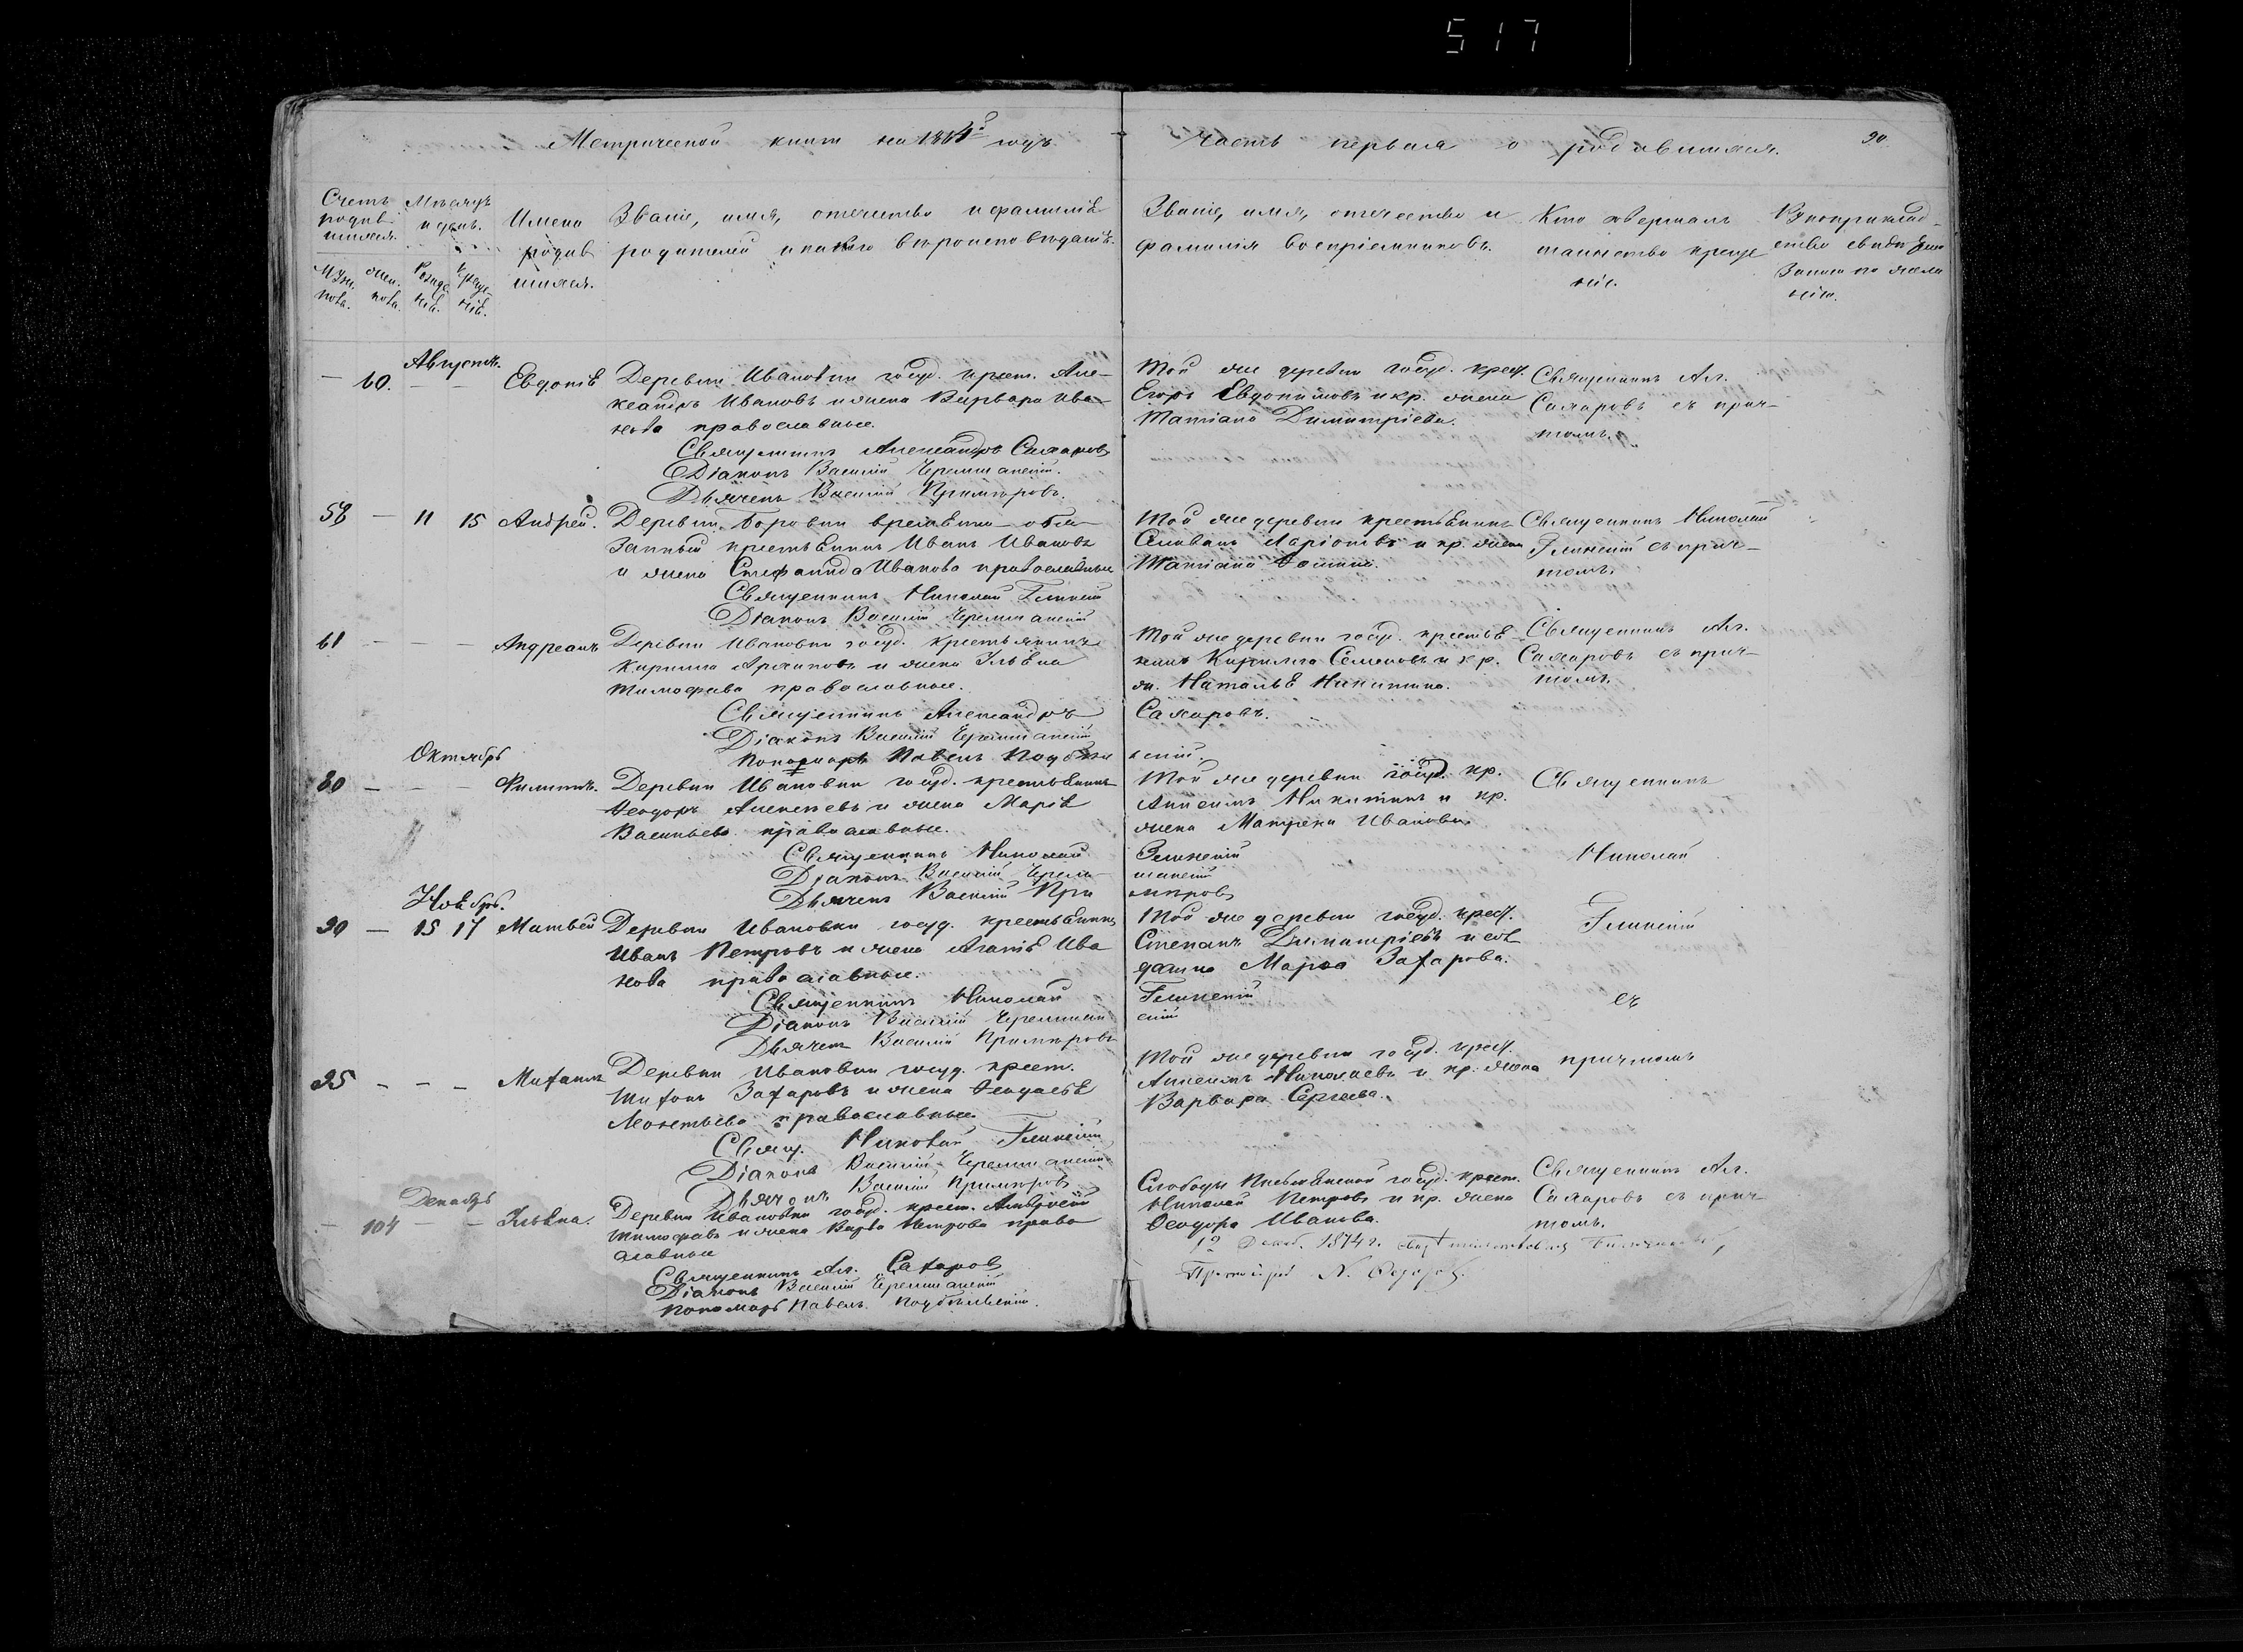 517
Метрической книги на 1864й годъ.
Часть первая о родившихся.
90
Счетъ родив
шихся.
Мѣсяцъ
и день.
Имена
родив
шихся.
Званіе, имя, отечество и фамилія
родителей и какого вѣроисповѣданія.
Муж. жен. Рожде Креще-
пола. пола. нія. нія.
Званіе, имя, отечество и
фамилія воспріемниковъ.
Кто совершалъ
таинство креще
нія.
Рукоприклад-
ство свидѣтелей
записи по жела
нію.
Августъ.
— 60. — — Евдокія
Деревни Ивановки госуд. крест. Але-
ксандръ Ивановъ и жена Варвара Ива-
нова православные.
Священникъ Александръ Сахаровъ
Діаконъ Василій Черемшанскій.
Дьячекъ Василій Примѣровъ.
Той же деревни госуд. крест.
Егоръ Евдокимовъ и кр. жена
Матіана Димитріева.
Священникъ Ал.
Сахаровъ съ прич-
томъ.
58 — 11 15 Андрей.
Деревни Боровки временно-обя-
занный крестьянинъ Иванъ Ивановъ
и жена Стефанида Иванова православные
Священникъ Николай Глинскій
Діаконъ Василій Черемшанскій
Той же деревни крестьянинъ
Селиванъ Ларіоновъ и кр. жена
Матіана Ѳомина.
Священникъ Николай
Глинскій съ прич-
томъ.
61 — — — Андреанъ
Деревни Ивановки госуд. крестьянинъ
Кирилла Архиповъ и жена Ульяна
Тимофѣева православные.
Священникъ Александръ
Діаконъ Василій Черемшанскій
Пономарь Павелъ Подбѣль
Той же деревни госуд. крестья-
нинъ Кирилла Семеновъ и кр.
ж. Наталья Никитина.
Сахаровъ.
скій.
Священникъ Ал.
Сахаровъ съ прич-
томъ.
Октябрь
80 — — — Филиппъ.
Деревни Ивановки госуд. крестьянинъ
Ѳеодоръ Алексѣевъ и жена Марія
Васильева православные.
Священникъ Николай
Діаконъ Василій Черем-
Дьячекъ Василій При
Той же деревни госуд. кр.
Анисимъ Никитинъ и кр.
жена Матрена Иванова.
Глинскій
шанскій
мѣровъ
Священникъ
Николай
Ноябрь.
90 — 15 17 Матвей
Деревни Ивановки госуд. крестьянинъ
Иванъ Петровъ и жена Агапія Ива
нова православные.
Священникъ Николай
Діаконъ Василій Черемшан
Дьячекъ Василій Примѣровъ
Той же деревни госуд. крест.
Степанъ Димитріевъ и сол
датка Марѳа Захарова.
Глинскій
скій
Глинскій
съ
95 — — — Михаилъ
Деревни Ивановки госуд. крест.
Тихонъ Захаровъ и жена Ѳеодосья
Леонтьева православные.
Свящ. Николай Глинскій
Діаконъ Василій Черемшанскій
Дьячекъ Василій Примѣровъ
Той же деревни госуд. крест.
Анисимъ Николаевъ и кр. жена
Варвара Сергеева.
причтомъ
Декабрь
— 104 — — Ульяна.
Деревни Ивановки госуд. крест. Амвросій
Тимофѣевъ и жена Варва Петрова право
славные
Священникъ Ал. Сахаровъ
Діаконъ Василій Черемшанскій
Пономарь Павелъ Подбѣльскій.
Слободы госуд. крест.
Николай Петровъ и кр. жена
Ѳеодора Иванова.
Священникъ Ал.
Сахаровъ съ прич-
томъ.
12 Декаб. 1874 г.
Протоіерей Н.